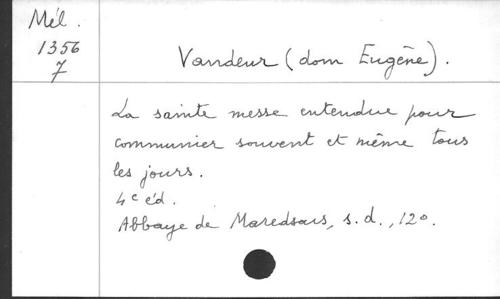 Mél.
1356
7
Vandeur (dom Eugène).
La sainte messe entendue pour
communier souvent et même tous
les jours.
4e éd.
Abbaye de Maredsous, s.d., 12o.